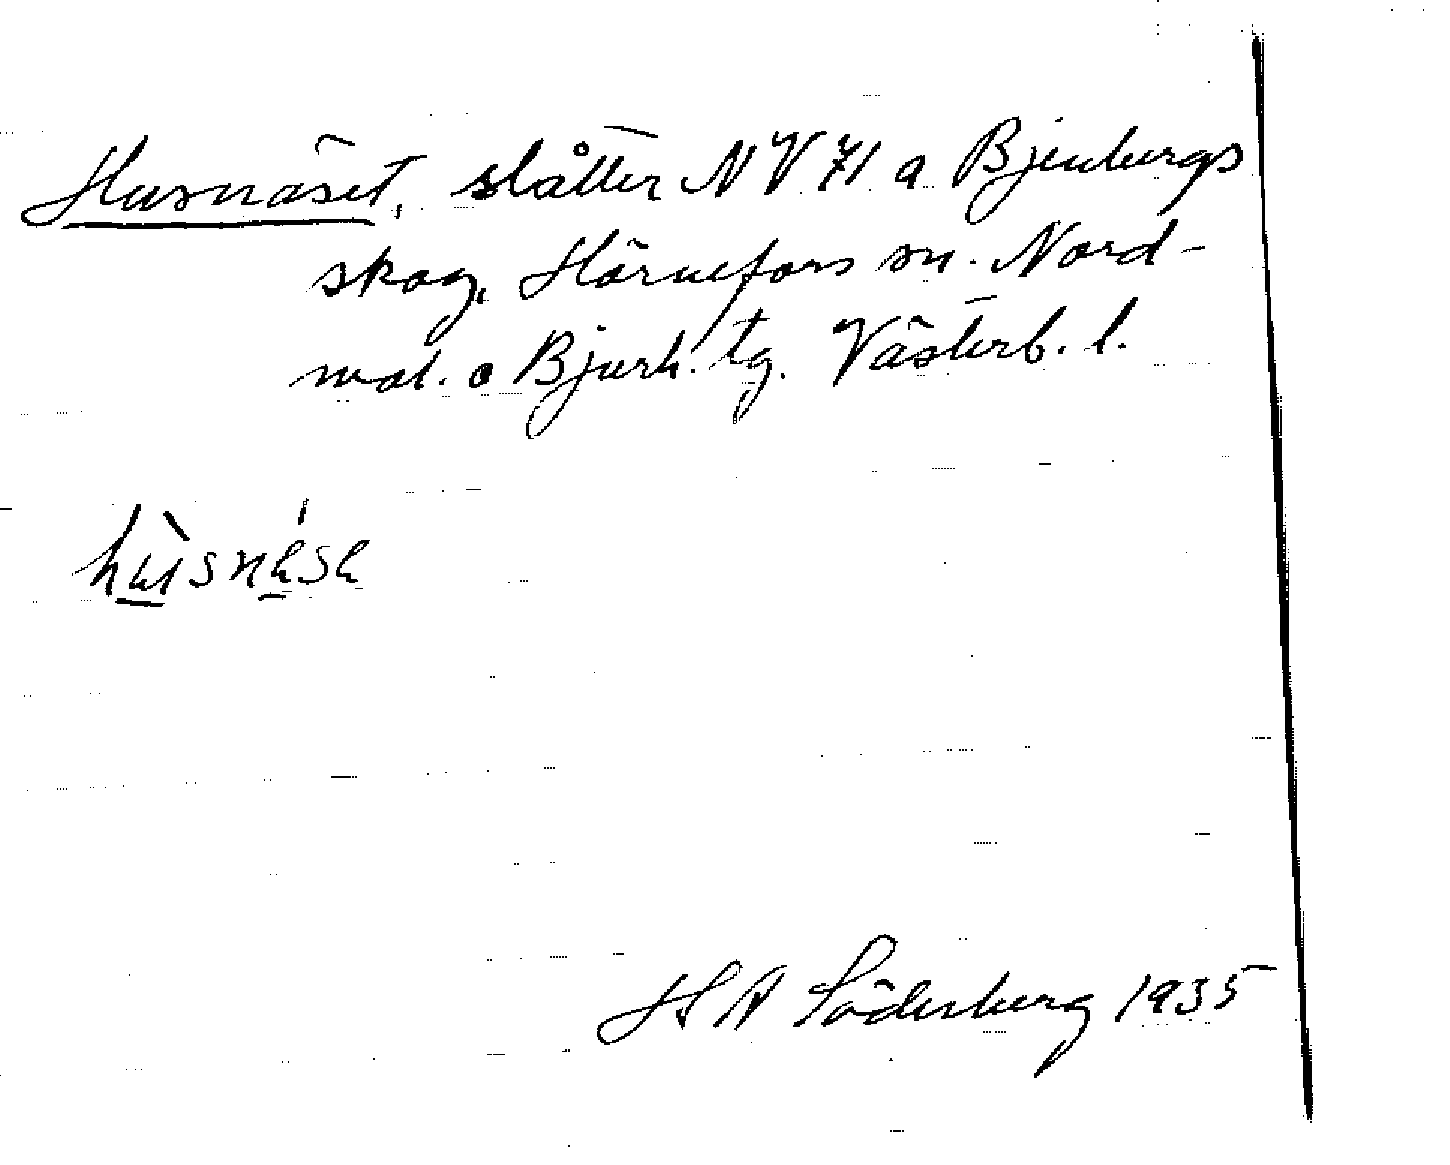 Husnäset, slåtter NV 71 a Bjenbergs
skog, Hörnefors sn. Nord-
mal. o Bjurh. tg. Västerb. l.
hù̲snésе
H A Söderberg 1935